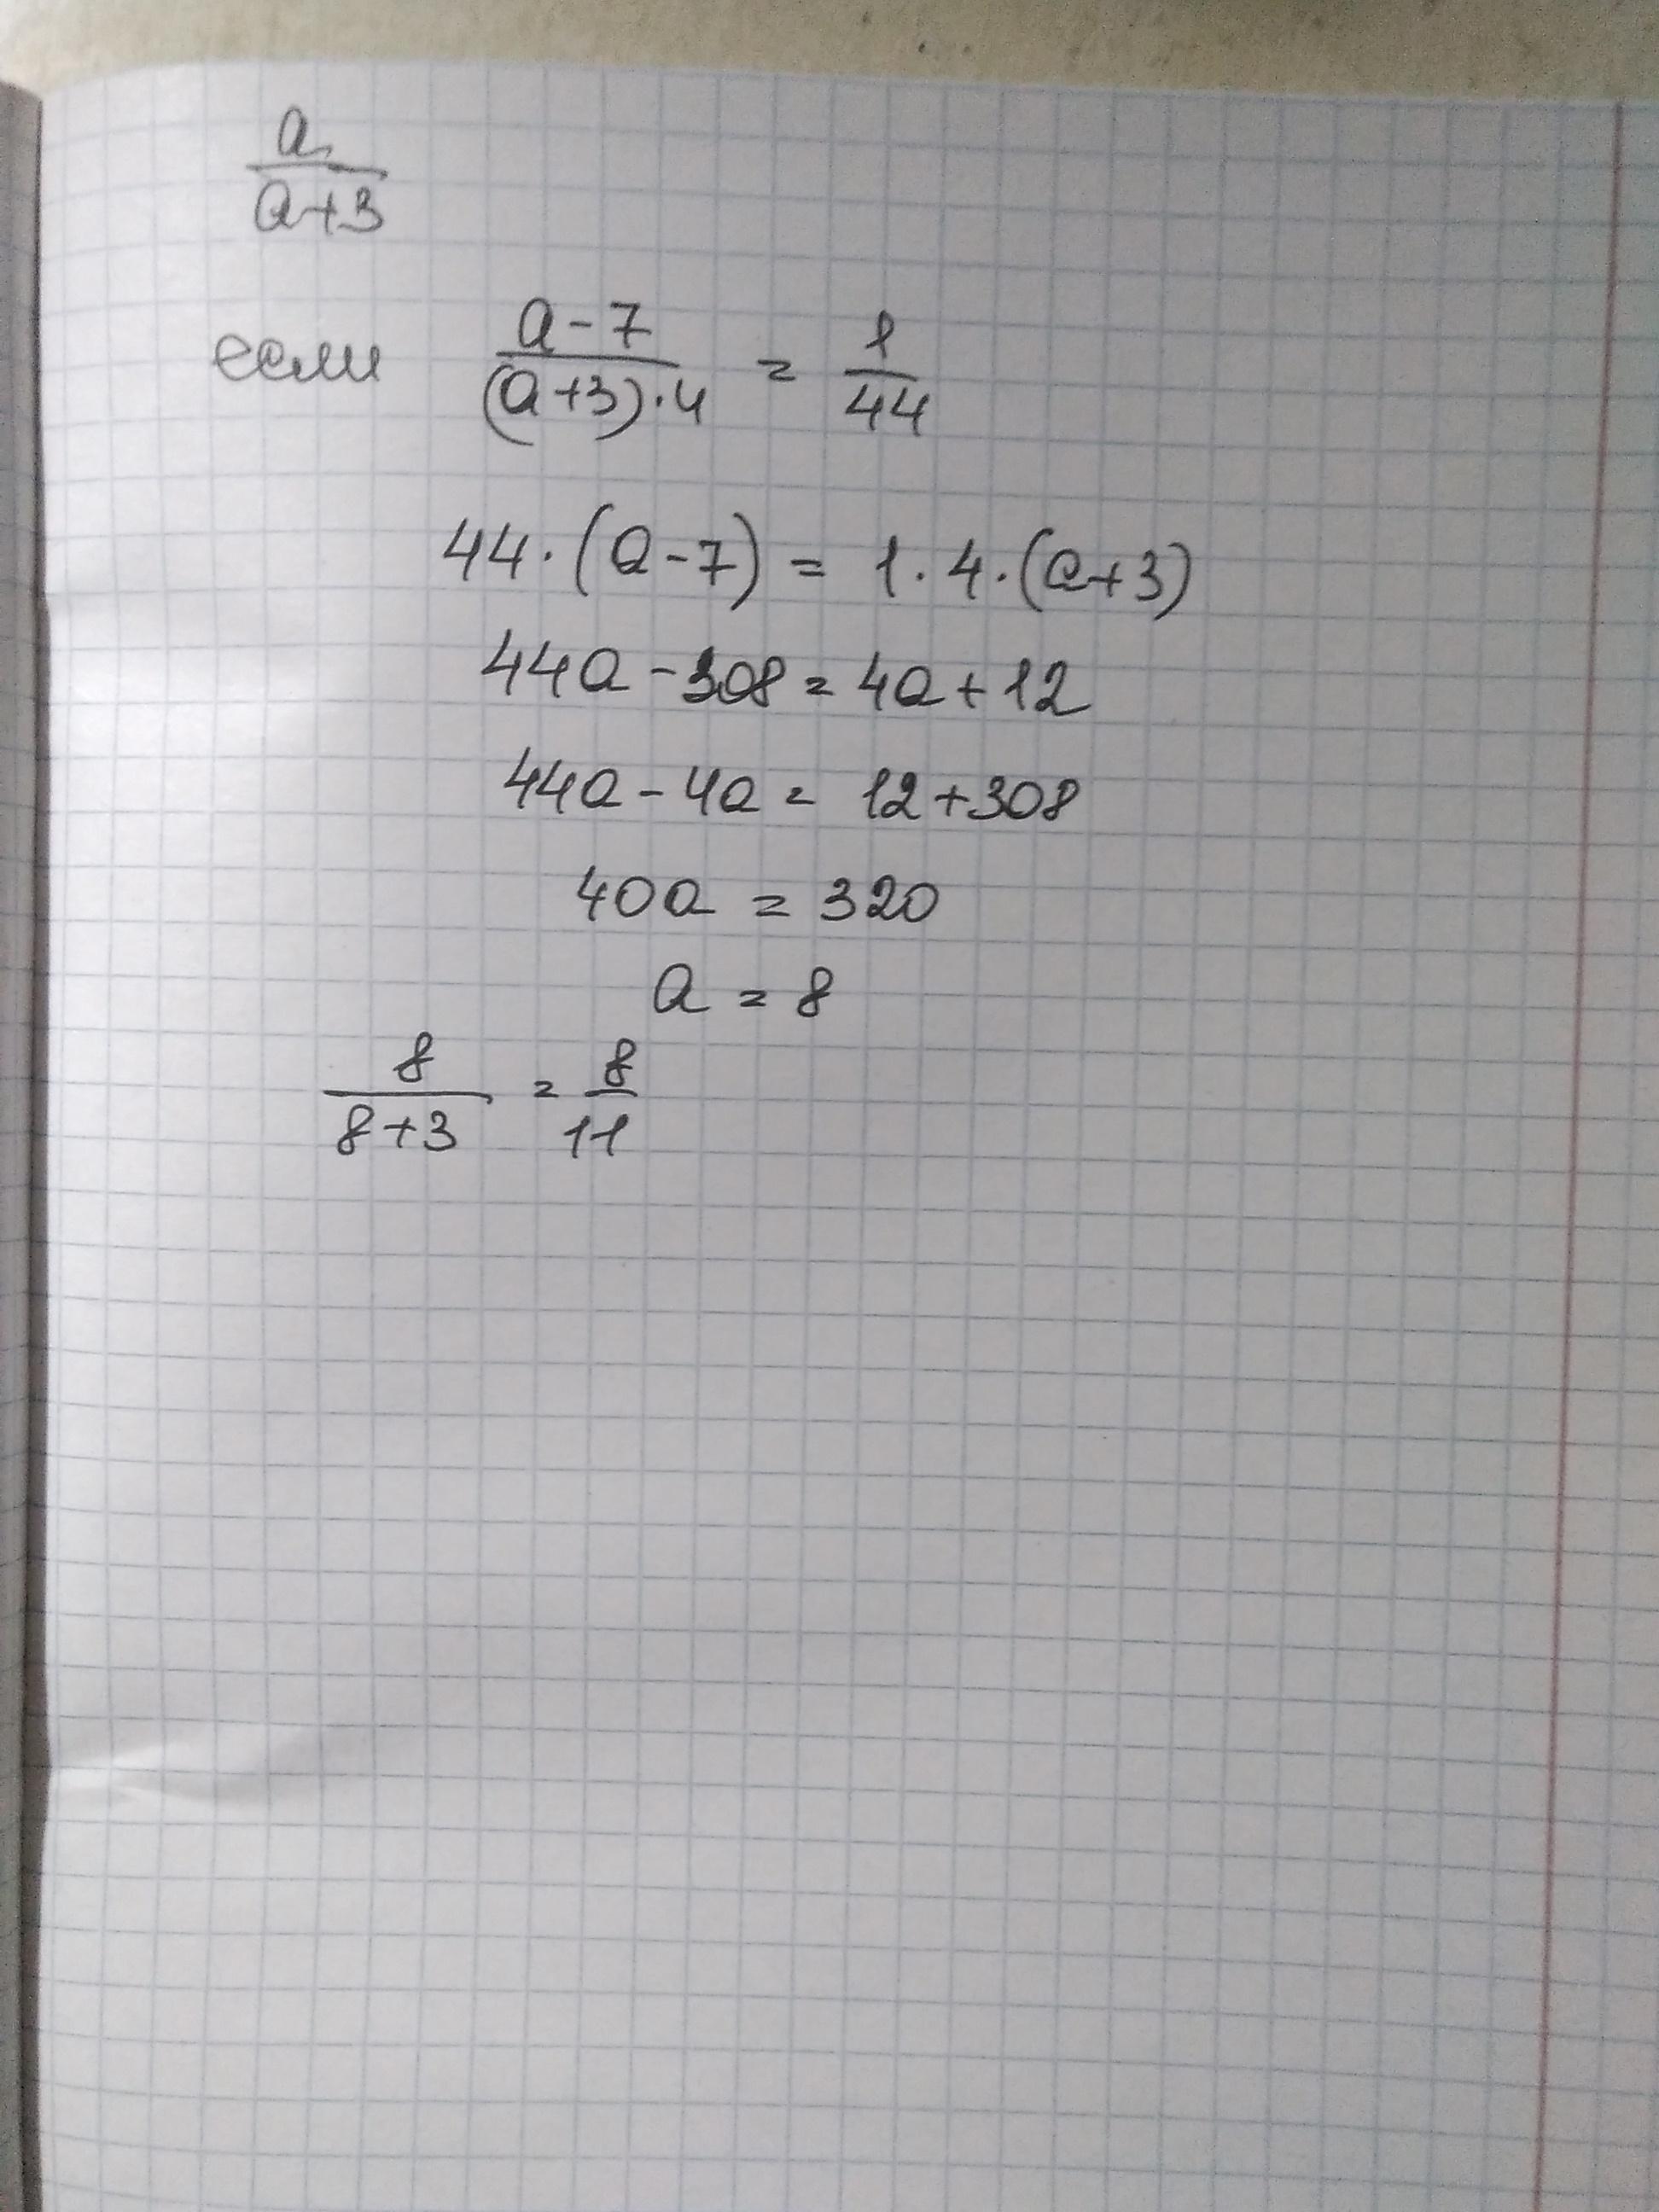 a
a+3
если (a-7)/((a+3)·4) = 1/44
44·(a-7) = 1·4·(a+3)
44a-308=4a+12
44a-4a=12+308
40a=320
a=8
8/(8+3) = 8/11